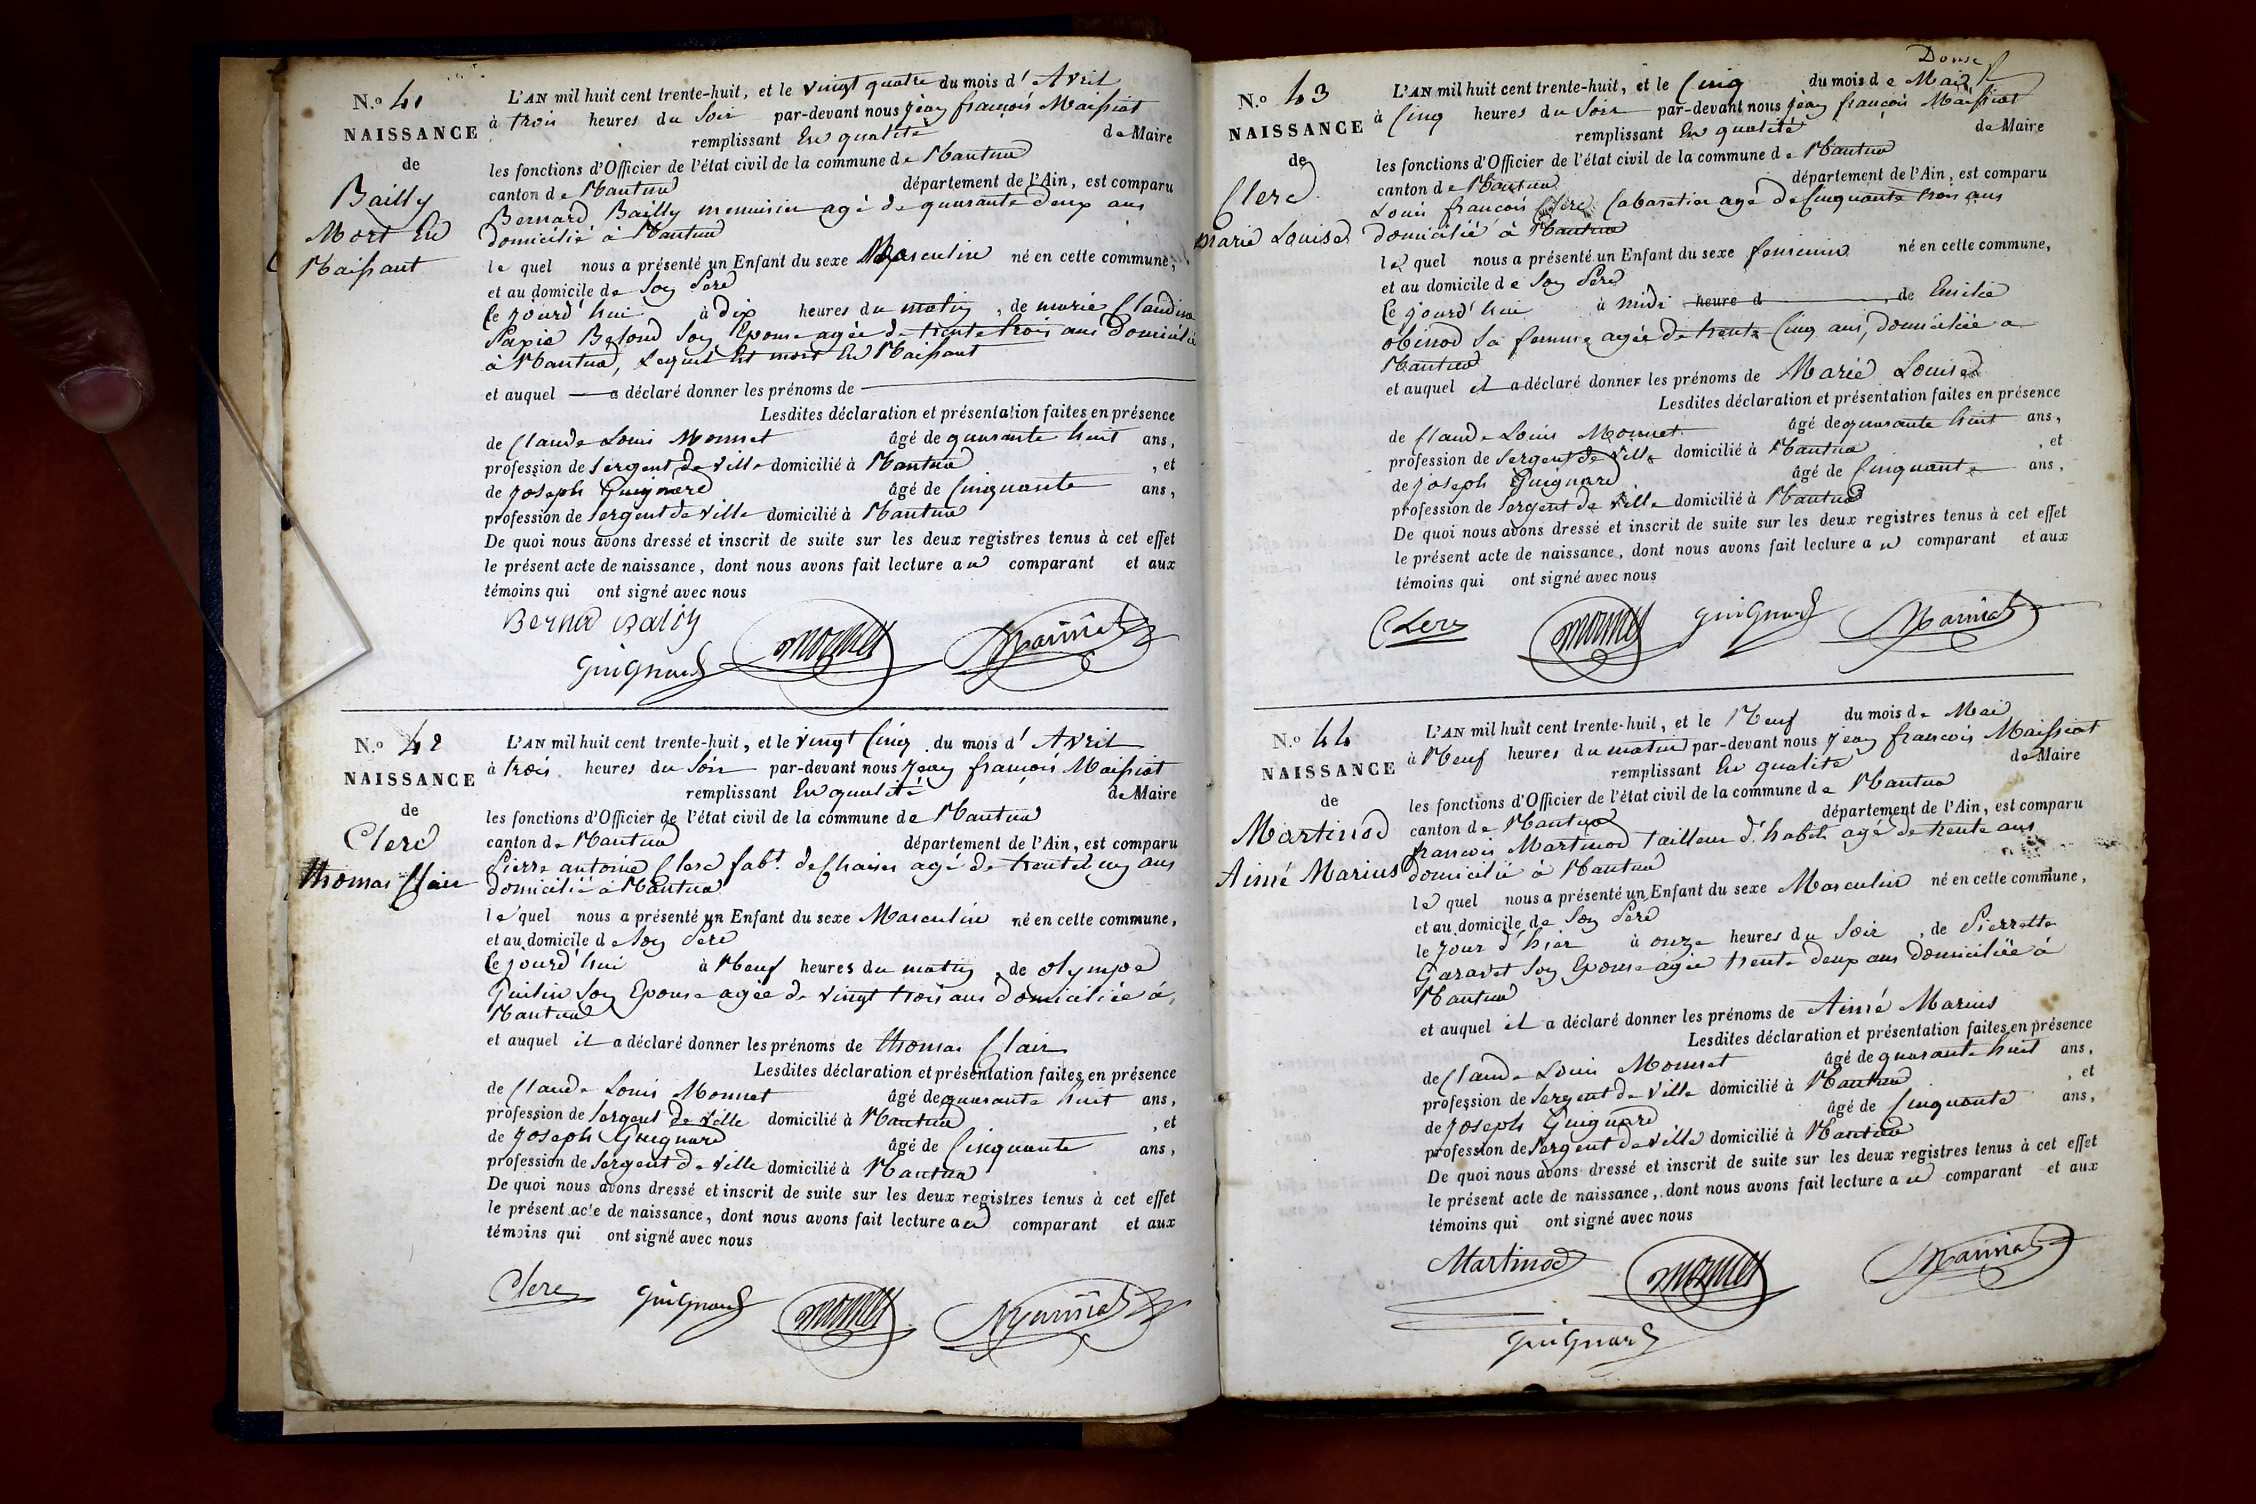 N.º 41
NAISSANCE
de
Bailly
Mort En
Naissant
L'AN mil huit cent trente-huit, et le vingt quatre du mois d' Avril
à trois heures du Soir par-devant nous Jean françois Maissiat
remplissant En qualité de Maire
les fonctions d'Officier de l'état civil de la commune de Nantua
canton de Nantua département de l'Ain, est comparu
Bernard Bailly menuisier agé de quarante deux ans
domicilié à Nantua
lequel nous a présenté un Enfant du sexe Masculin né en cette commune,
et au domicile de Son Père
Ce jourd'hui à dix heures du matin, de marie Claudine
Son Epouse agée de trente trois ans domiciliée
à Nantua, Lequel Est mort En Naissant
et auquel — a déclaré donner les prénoms de —
Lesdites déclaration et présentation faites en présence
de Claude Louis Monnet âgé de quarante huit ans,
profession de Sergent de Ville domicilié à Nantua, et
de Joseph Guignard âgé de Cinquante ans,
profession de Sergent de Ville domicilié à Nantua
De quoi nous avons dressé et inscrit de suite sur les deux registres tenus à cet effet
le présent acte de naissance, dont nous avons fait lecture au comparant et aux
témoins qui ont signé avec nous
Guignard Monnet Maissiat
N.º 42
NAISSANCE
de
Clerc
thomas Clair
L'AN mil huit cent trente-huit, et le vingt Cinq du mois d' Avril
à trois heures du Soir par-devant nous Jean françois Maissiat
remplissant En qualité de Maire
les fonctions d'Officier de l'état civil de la commune de Nantua
canton de Nantua département de l'Ain, est comparu
Pierre antoine Clerc fabt. de Chaises agé de trente Cinq ans
domicilié à Nantua
lequel nous a présenté un Enfant du sexe Masculin né en cette commune,
et au domicile de Son Père
Ce jourd'hui à Neuf heures du matin, de olympe
Son Epouse agée de vingt trois ans domiciliée à
Nantua
et auquel il a déclaré donner les prénoms de thomas Clair
Lesdites déclaration et présentation faites en présence
de Claude Louis Monnet âgé de quarante huit ans,
profession de Sergent de Ville domicilié à Nantua, et
de Joseph Guignard âgé de Cinquante ans,
profession de Sergent de Ville domicilié à Nantua
De quoi nous avons dressé et inscrit de suite sur les deux registres tenus à cet effet
le présent acte de naissance, dont nous avons fait lecture au comparant et aux
témoins qui ont signé avec nous
Clerc Guignard Monnet Maissiat
N.º 43
NAISSANCE
de
Clerc
Marie Louise
L'AN mil huit cent trente-huit, et le Cinq du mois de Mai
à Cinq heures du Soir par-devant nous Jean françois Maissiat
remplissant En qualité de Maire
les fonctions d'Officier de l'état civil de la commune de Nantua
canton de Nantua département de l'Ain, est comparu
Louis françois Clerc Cabaretier agé de Cinquante trois ans
domicilié à Nantua
lequel nous a présenté un Enfant du sexe feminin né en cette commune,
et au domicile de Son Père
Ce jourd'hui à midi heure d, de Emilie
obinod Sa femme agée de trente Cinq ans, domiciliée a
Nantua
et auquel il a déclaré donner les prénoms de Marie Louise
Lesdites déclaration et présentation faites en présence
de Claude Louis Monnet âgé de quarante huit ans,
profession de Sergent de Ville domicilié à Nantua, et
de Joseph Guignard âgé de Cinquante ans,
profession de Sergent de Ville domicilié à Nantua
De quoi nous avons dressé et inscrit de suite sur les deux registres tenus à cet effet
le présent acte de naissance, dont nous avons fait lecture au comparant et aux
témoins qui ont signé avec nous
Clerc Monnet Guignard Maissiat
N.º 44
NAISSANCE
de
Martinod
Aimé Marius
L'AN mil huit cent trente-huit, et le Neuf du mois de Mai
à Neuf heures du matin par-devant nous Jean francois Maissiat
remplissant En qualité de Maire
les fonctions d'Officier de l'état civil de la commune de Nantua
canton de Nantua département de l'Ain, est comparu
francois Martinod tailleur d'habits agé de trente ans
domicilié à Nantua
lequel nous a présenté un Enfant du sexe Masculin né en cette commune,
et au domicile de Son Père
le jour d'hier à onze heures du Soir, de Pierrette
Garavet Son Epouse agée trente deux ans domiciliée à
Nantua
et auquel il a déclaré donner les prénoms de Aimé Marius
Lesdites déclaration et présentation faites en présence
de Claude Louis Monnet âgé de quarante huit ans,
profession de Sergent de Ville domicilié à Nantua, et
de Joseph Guignard âgé de Cinquante ans,
profession de Sergent de Ville domicilié à Nantua
De quoi nous avons dressé et inscrit de suite sur les deux registres tenus à cet effet
le présent acte de naissance, dont nous avons fait lecture au comparant et aux
témoins qui ont signé avec nous
Martinod Monnet Maissiat
Guignard